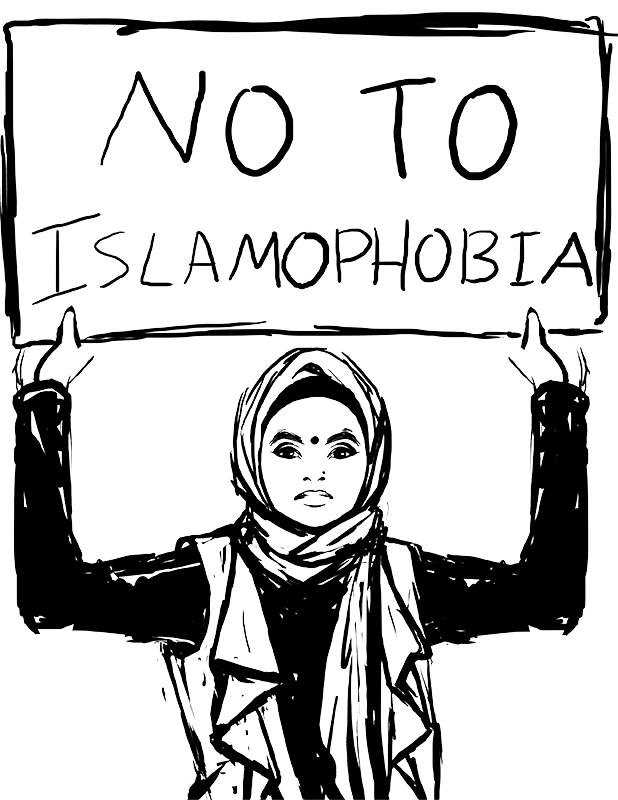 NO TO
ISLAMOPHOBIA